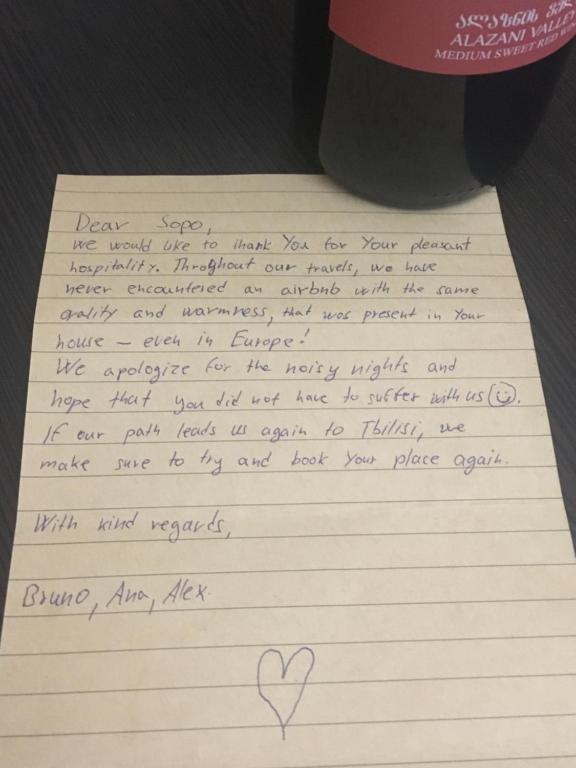 ᲐᲚᲐᲖᲜᲘᲡ
ALAZANI VALLEY
MEDIUM SWEET RED
Dear Sopo,
we would like to thank You for Your pleasant
hospitality. Throghout our travels, we have
never encountered an airbnb with the same
qality and warmness, that was present in Your
house – even in Europe!
We apologize for the noisy nights and
hope that you did not have to suffer with us ☺.
If our path leads us again to Tbilisi, we
make sure to try and book Your place again.
With kind regards,
Bruno, Ana, Alex